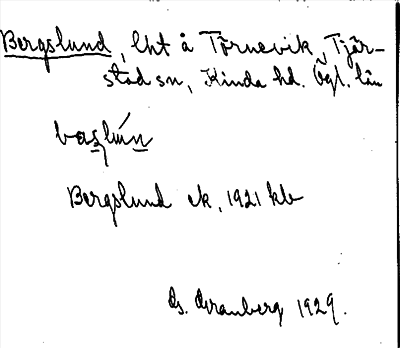 Bergslund, lht å Törnevik, Tjär-
stad sn, Kinda hd. Ögl. län
Bergslund ek, 1921 kb
G. Granberg 1929.